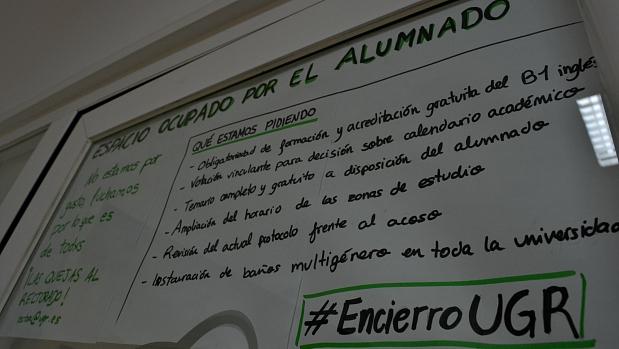 ESPACIO OCUPADO POR EL ALUMNADO
No estamos por
gusto, luchamos
por lo que es
de todxs
¡LAS QUEJAS AL
RECTORADO!
QUÉ ESTAMOS PIDIENDO
- Obligatoriedad de formación y acreditación gratuita del B1 inglés
- Votación vinculante para decisión sobre calendario académico
- Temario completo y gratuito a disposición del alumnado
- Ampliación del horario de las zonas de estudio
- Revisión del actual protocolo frente al acoso
- Instauración de baños multigénero en toda la universidad
#EncierroUGR